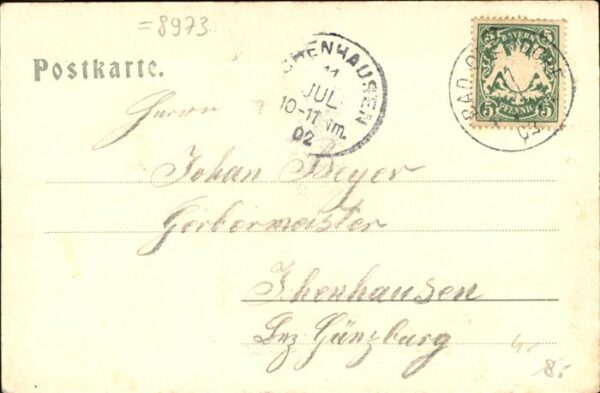 =8973
Postkarte.
ICHENHAUSEN
11
JUL
10-11 Vm.
02
BAYERN
5 5
PFENNIG
BAD
02
Herrn
Johan Beyer
Gerbermeister
Ichenhausen
Bez Günzburg